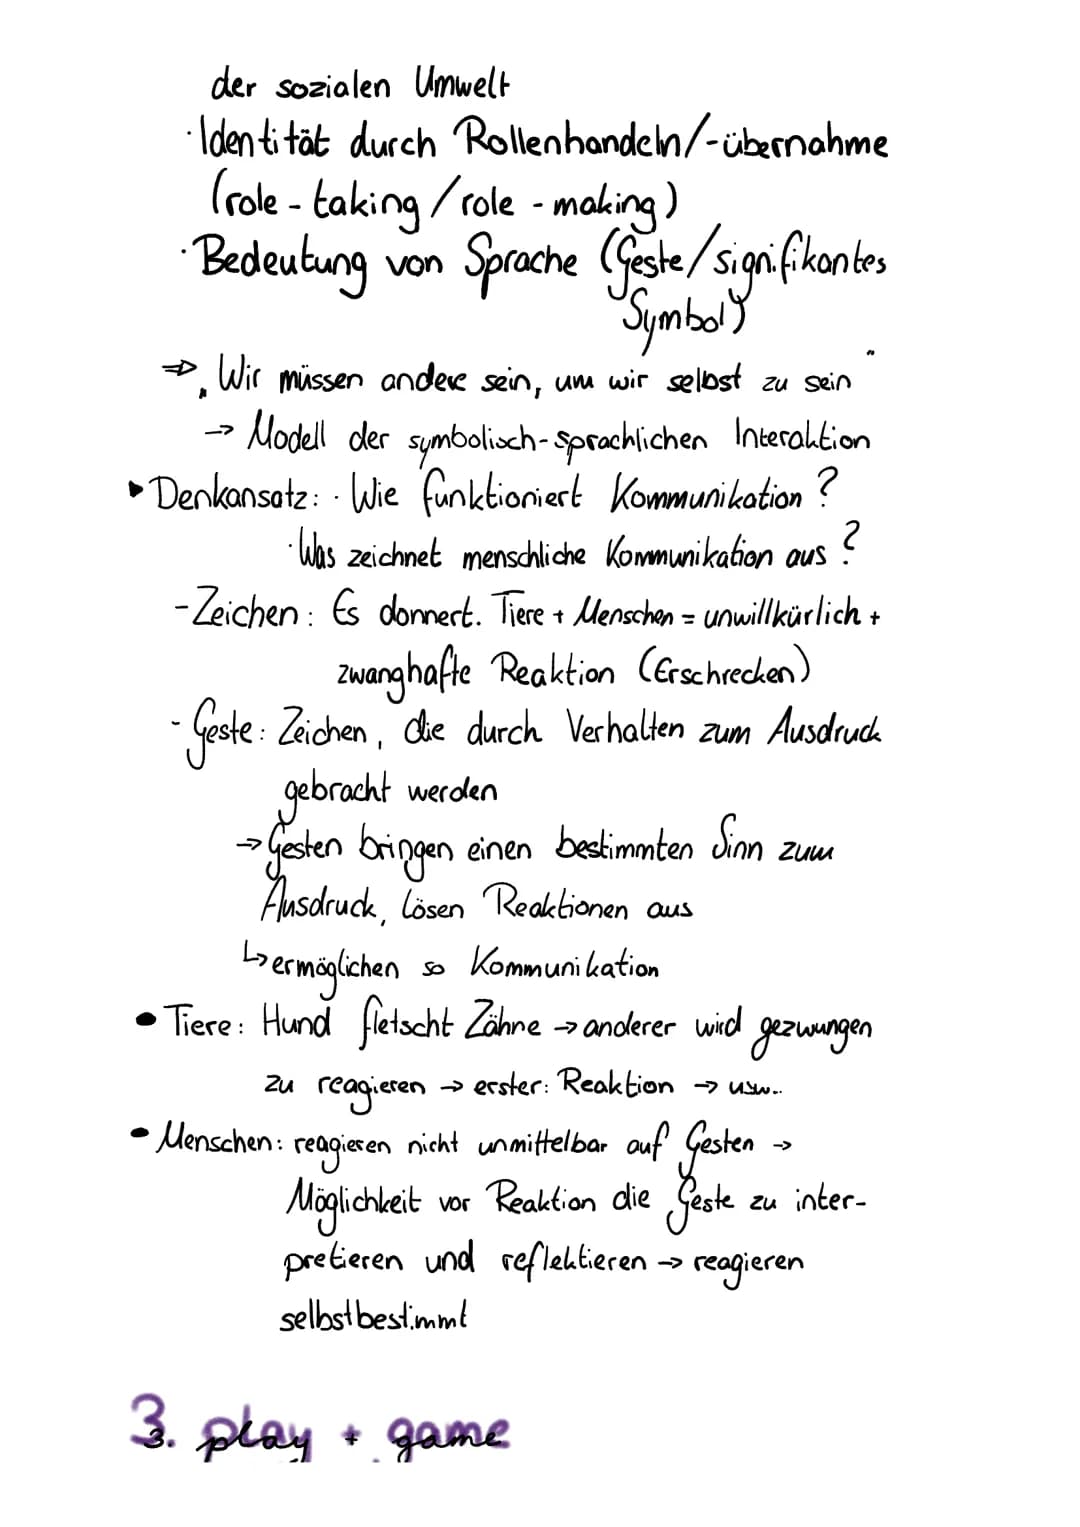 der sozialen Umwelt
· Identität durch Rollenhandeln/-übernahme
(role-taking/role-making)
· Bedeutung von Sprache (Geste/signifikantes
Symbol)
⇒ „Wir müssen andere sein, um wir selbst zu sein"
→ Modell der symbolisch-sprachlichen Interaktion
▸ Denkansatz: · Wie funktioniert Kommunikation?
· Was zeichnet menschliche Kommunikation aus?
- Zeichen: Es donnert. Tiere + Menschen = unwillkürlich +
zwanghafte Reaktion (Erschrecken)
- Geste: Zeichen, die durch Verhalten zum Ausdruck
gebracht werden
→ Gesten bringen einen bestimmten Sinn zum
Ausdruck, lösen Reaktionen aus
↳ ermöglichen so Kommunikation
• Tiere: Hund fletscht Zähne → anderer wird gezwungen
zu reagieren → erster: Reaktion → usw..
• Menschen: reagieren nicht unmittelbar auf Gesten →
Möglichkeit vor Reaktion die Geste zu inter-
pretieren und reflektieren → reagieren
selbstbestimmt
3. play + game